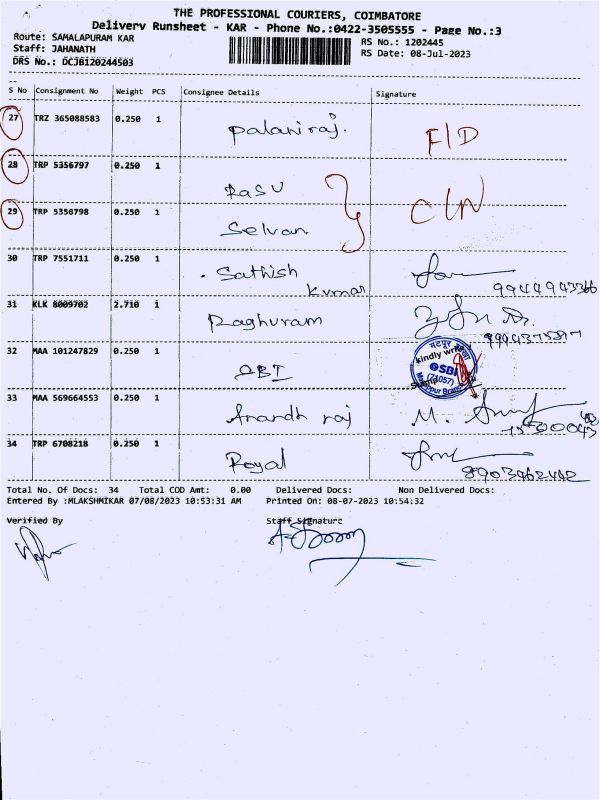 THE PROFESSIONAL COURIERS, COIMBATORE
Delivery Runsheet - KAR - Phone No.:0422-3505555 - Page No.:3
Route: SAMALAPURAM KAR
RS No.: 1202445
Staff: JAHANATH
RS Date: 08-Jul-2023
DRS No.: DCJB120244503
S No Consignment No Weight PCS Consignee Details Signature
27 TRZ 365088583 0.250 1 Palaniraj. F/D
28 TRP 5356797 0.250 1 RASU
29 TRP 5356798 0.250 1 Selvan
30 TRP 7551711 0.250 1 Sathish Kumar
9944943366
31 KLK 8009702 2.710 1 Raghuram
32 MAA 101247829 0.250 1
kindly
SBI
33 MAA 569664553 0.250 1 Anandh raj
34 TRP 6708218 0.250 1 Royal
Total No. Of Docs: 34 Total COD Amt: 0.00 Delivered Docs: Non Delivered Docs:
Entered By :MLAKSHMIKAR 07/08/2023 10:53:31 AM Printed On: 08-07-2023 10:54:32
Verified By Staff Signature